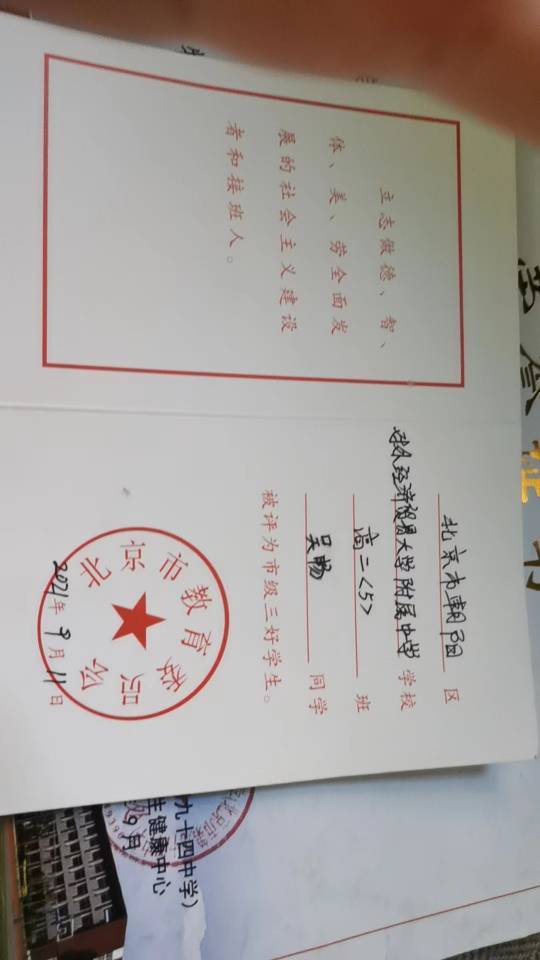 立志做德、智、
体、美、劳全面发
展的社会主义建设
者和接班人。
北京市朝阳区
经济贸易大学附属中学学校
高二<5>班
吴畅同学
被评为市级三好学生。
北京市教育委员会
2021年9月11日
九十四中学)
生健康中心
9月
证书